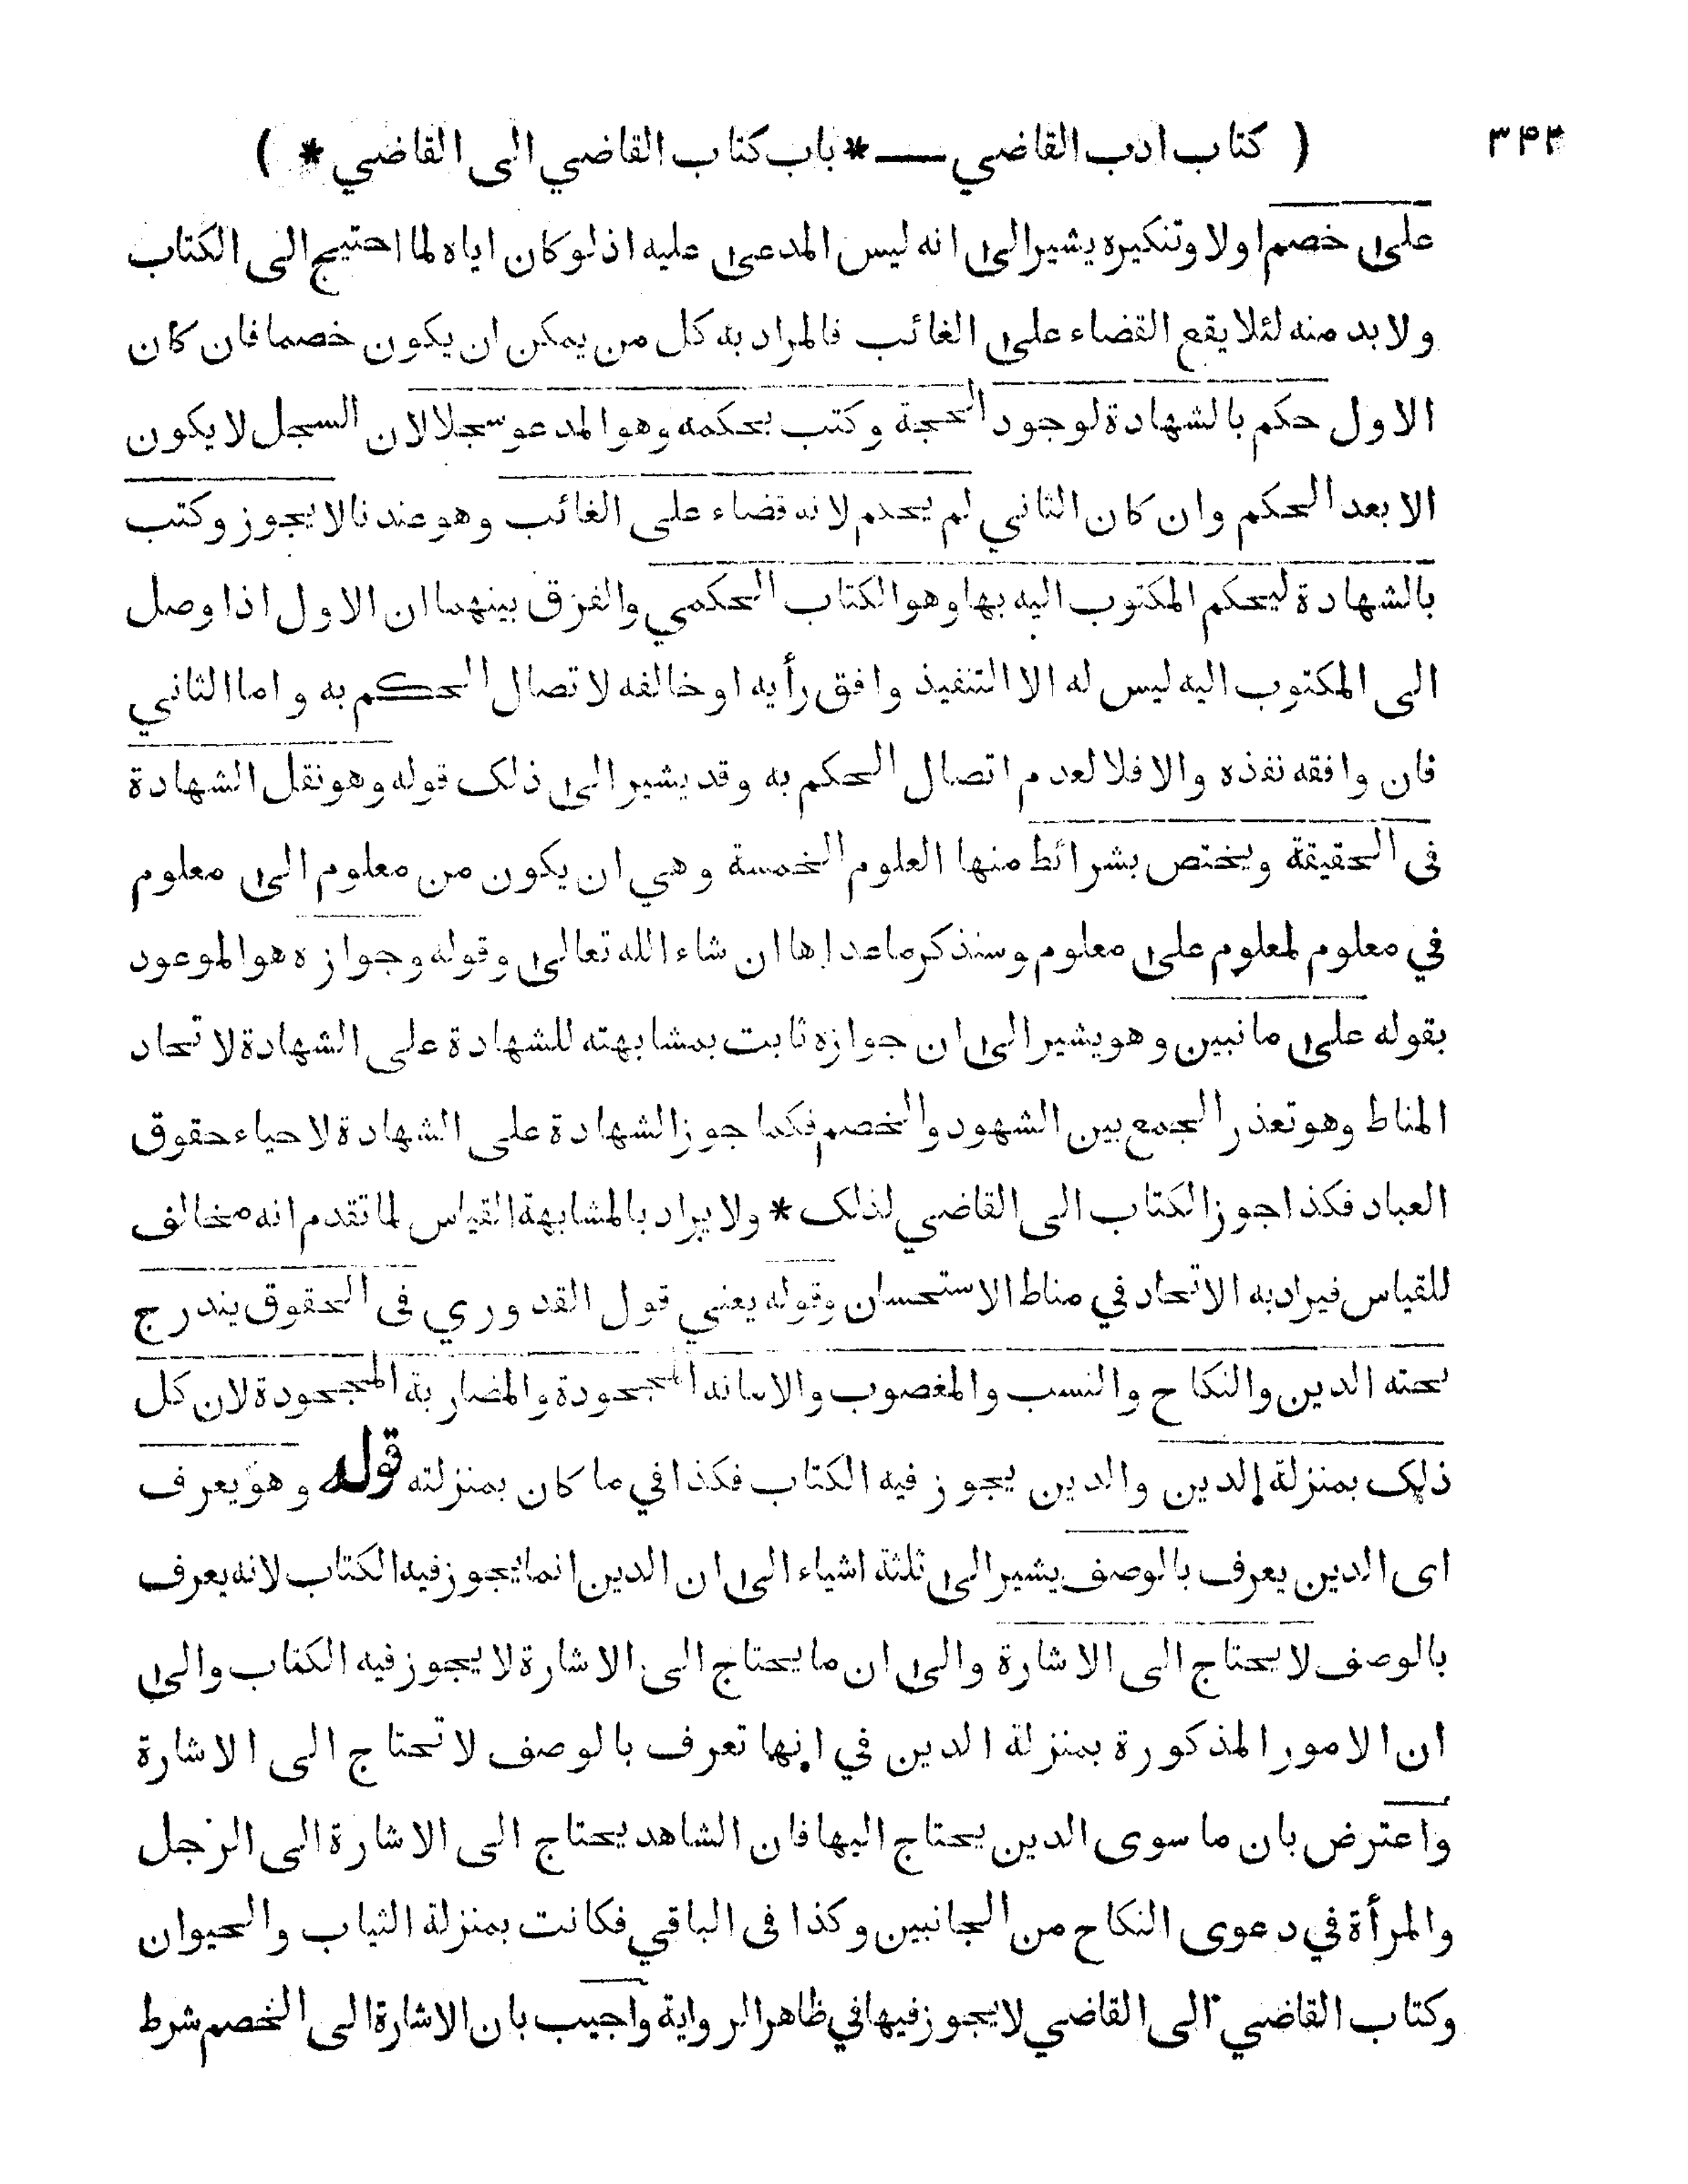 ( كتاب ادب القاضي — * باب كتاب القاضي الى القاضي * ) ٣٤٢
على خصم اولا وتنكيره يشير الى انه ليس المدعى عليه اذ لو كان اياه لما احتيج الى الكتاب
ولا بد منه لئلا يقع القضاء على الغائب فالمراد به كل من يمكن ان يكون خصما فان كان
الاول حكم بالشهادة لوجود الحجة وكتب بحكمه وهو المدعو سجلا لان السجل لا يكون
الا بعد الحكم وان كان الثاني لم يحكم لانه قضاء على الغائب وهو عندنا لا يجوز وكتب
بالشهادة ليحكم المكتوب اليه بها وهو الكتاب الحكمي والفرق بينهما ان الاول اذا وصل
الى المكتوب اليه ليس له الا التنفيذ وافق رأيه او خالفه لاتصال الحكم به واما الثاني
فان وافقه نفذه والا فلا لعدم اتصال الحكم به وقد يشير الى ذلك قوله وهو نقل الشهادة
فى الحقيقة ويختص بشرائط منها العلوم الخمسة وهي ان يكون من معلوم الى معلوم
في معلوم لمعلوم على معلوم وسنذكر ما عداها ان شاء الله تعالى وقوله وجوازه هو الموعود
بقوله على ما نبين وهو يشير الى ان جوازه ثابت بمشابهته للشهادة على الشهادة لاتحاد
المناط وهو تعذر الجمع بين الشهود والخصم فكما جوز الشهادة على الشهادة لاحياء حقوق
العباد فكذا جوز الكتاب الى القاضي لذلك * ولا يراد بالمشابهة القياس لما تقدم انه مخالف
للقياس فيراد به الاتحاد في مناط الاستحسان وقوله يعني قول القدوري فى الحقوق يندرج
تحته الدين والنكاح والنسب والمغصوب والامانة المجحودة والمضاربة المجحودة لان كل
ذلك بمنزلة الدين والدين يجوز فيه الكتاب فكذا في ما كان بمنزلته قوله وهو يعرف
اى الدين يعرف بالوصف يشير الى ثلثة اشياء الى ان الدين انما يجوز فيه الكتاب لانه يعرف
بالوصف لا يحتاج الى الاشارة والى ان ما يحتاج الى الاشارة لا يجوز فيه الكتاب والى
ان الامور المذكورة بمنزلة الدين في انها تعرف بالوصف لا تحتاج الى الاشارة
واعترض بان ما سوى الدين يحتاج اليها فان الشاهد يحتاج الى الاشارة الى الرجل
والمرأة في دعوى النكاح من الجانبين وكذا فى الباقي فكانت بمنزلة الثياب والحيوان
وكتاب القاضي الى القاضي لا يجوز فيها في ظاهر الرواية واجيب بان الاشارة الى الخصم شرط